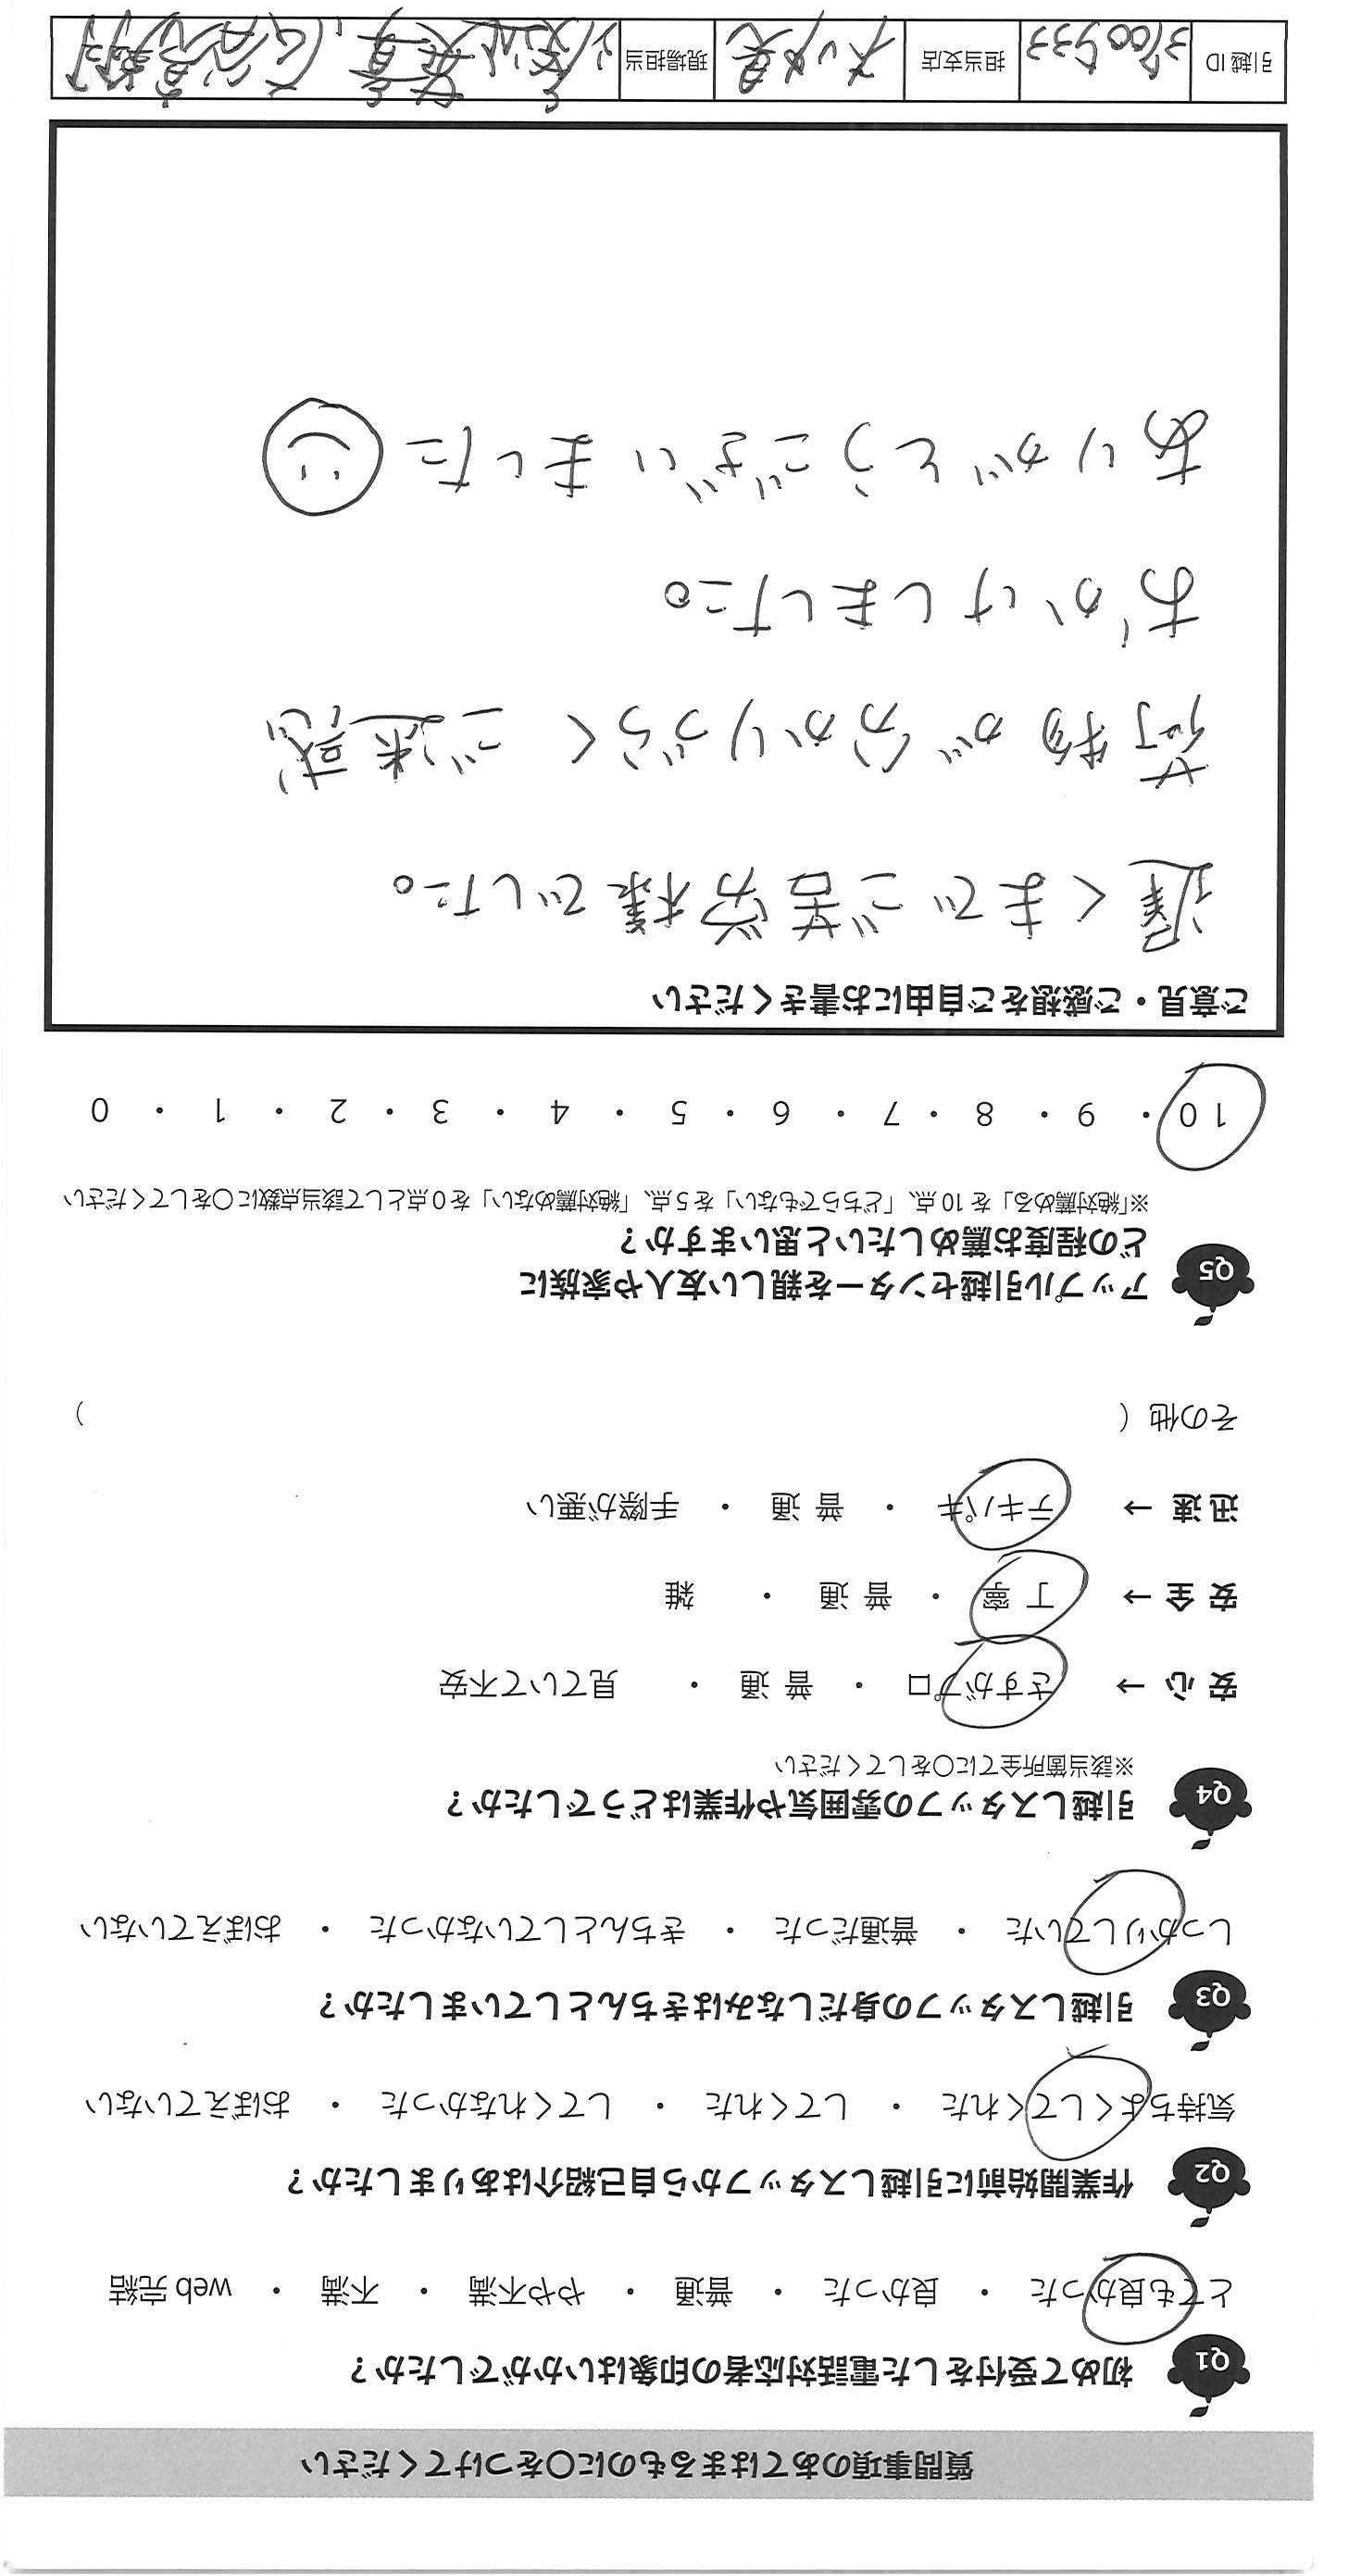 質問事項のあてはまるものに○をつけてください
Q1 初めて受付をした電話対応者の印象はいかがでしたか？
とても良かった ・ 良かった ・ 普通 ・ やや不満 ・ 不満 ・ web 完結
Q2 作業開始前に引越しスタッフから自己紹介はありましたか？
気持ちよくしてくれた ・ してくれた ・ してくれなかった ・ おぼえていない
Q3 引越しスタッフの身だしなみはきちんとしていましたか？
しっかりしていた ・ 普通だった ・ きちんとしていなかった ・ おぼえていない
Q4 引越しスタッフの雰囲気や作業はどうでしたか？
※該当箇所全てに○をしてください
安 心 → さすがプロ ・ 普 通 ・ 見ていて不安
安 全 → 丁 寧 ・ 普 通 ・ 雑
迅 速 → テキパキ ・ 普 通 ・ 手際が悪い
その他（ ）
Q5 アップル引越センターを親しい友人や家族に
どの程度お薦めしたいと思いますか？
※「絶対薦める」を 10 点、「どちらでもない」を 5 点、「絶対薦めない」を 0 点として該当点数に○をしてください
10 ・ 9 ・ 8 ・ 7 ・ 6 ・ 5 ・ 4 ・ 3 ・ 2 ・ 1 ・ 0
ご意見・ご感想をご自由にお書きください
遅くまでご苦労様でした。
荷物が分かりづらく ご迷惑
おかけしました。
ありがとうございました
引越 ID 担当支店 現場担当